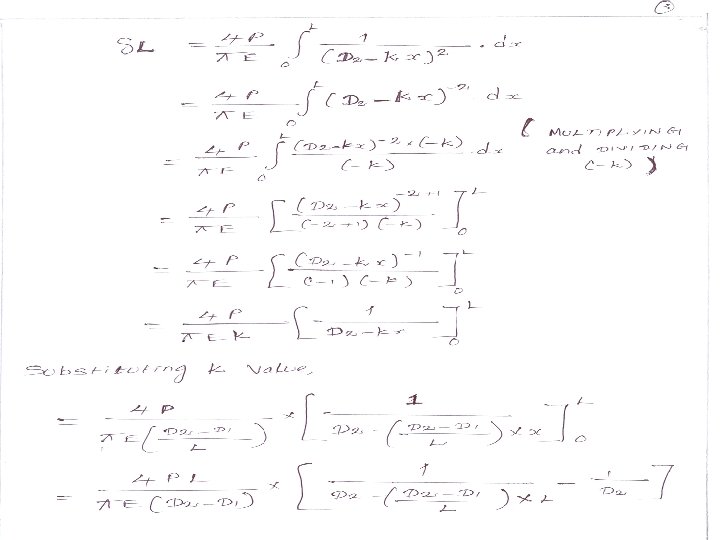 (3)
δL = 4P/πE ∫₀ᴸ 1/(D2 - k x)² . dx
= 4P/πE ∫₀ᴸ (D2 - k x)⁻² dx
= 4P/πE ∫₀ᴸ (D2 - kx)⁻² × (-k)/(-k) . dx ( MULTIPLYING and DIVIDING (-k) )
= 4P/πE [ (D2 - kx)⁻²⁺¹/(-2+1)(-k) ]₀ᴸ
= 4P/πE [ (D2 - k x)⁻¹/(-1)(-k) ]₀ᴸ
= 4P/πE.K [ 1/D2 - kx ]₀ᴸ
Substituting k value,
= 4P/πE(D2 - D1/L) × [ 1/D2 - (D2 - D1/L) × x ]₀ᴸ
= 4PL/πE(D2 - D1) × [ 1/D2 - (D2 - D1/L) × L - 1/D2 ]